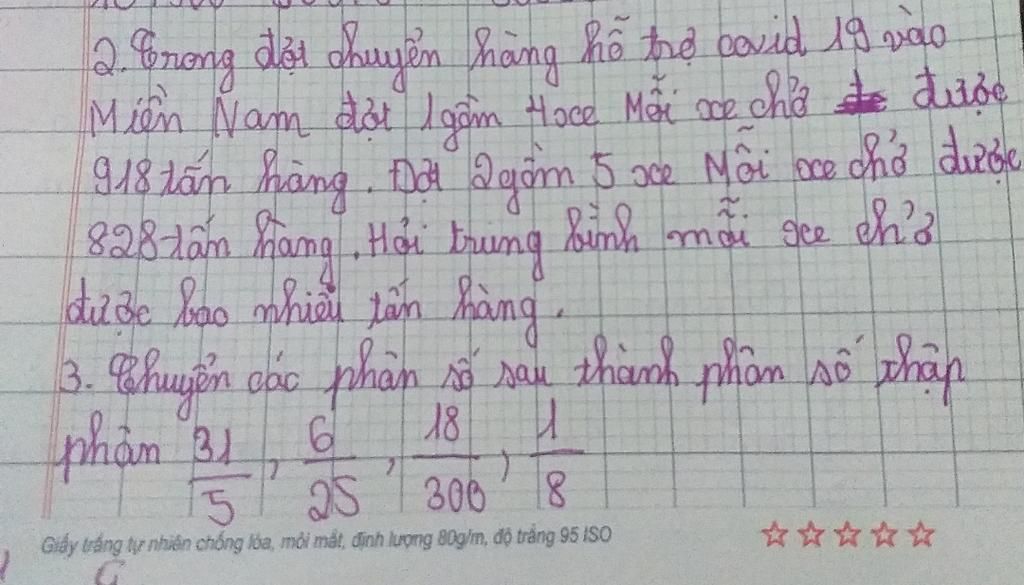 2. Trong đợt chuyển hàng hỗ trợ covid 19 vào
Miền Nam đợt 1 gồm 4 xe Mỗi xe chở được
918 tấn hàng. Đợt 2 gồm 5 xe Mỗi xe chở được
828 tấn hàng. Hỏi trung bình mỗi xe chở
được bao nhiêu tấn hàng.
3. Chuyển các phân số sau thành phân số thập
phân 31/5, 6/25, 18/300, 1/8
Giấy trắng tự nhiên chống lóa, mỏi mắt, định lượng 80g/m, độ trắng 95 ISO